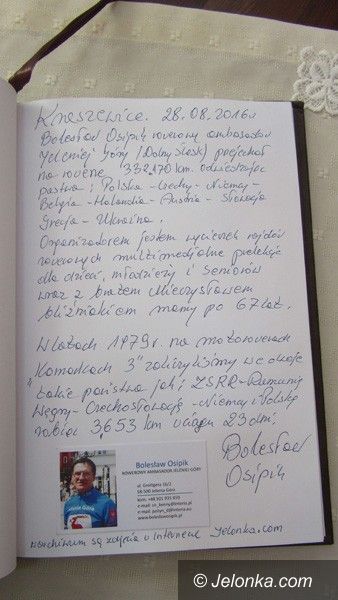 Kruszewice. 28.08.2016r
Bolesław Osipik rowerowy ambasador
Jeleniej Góry (Dolny Śląsk) przejechał
na rowerze 332.170 km. odwiedzając
państwa: Polska - Czechy - Niemcy -
Belgia - Holandia - Austria - Słowacja
Grecja - Ukraina.
Organizatorem jestem wycieczek rajdów
rowerowych multimedialne prelekcje
dla dzieci, młodzieży i Seniorów
wraz z bratem Mieczysławem
bliźniakiem mamy po 67 lat.
W latach 1979r. na motorowerach
"Komarkach 3" zaliczyliśmy we dwoje
takie państwa jak: ZSRR - Rumunię
Węgry - Czechosłowację - Niemcy i Polskę
robiąc 3653 km w ciągu 23 dni.
Bolesław
Osipik
Bolesław Osipik
ROWEROWY AMBASADOR JELENIEJ GÓRY
58-500 Jelenia Góra
www.boleslawosipik.pl
w archiwum są zdjęcia w internecie Jelonka.com
© Jelonka.com